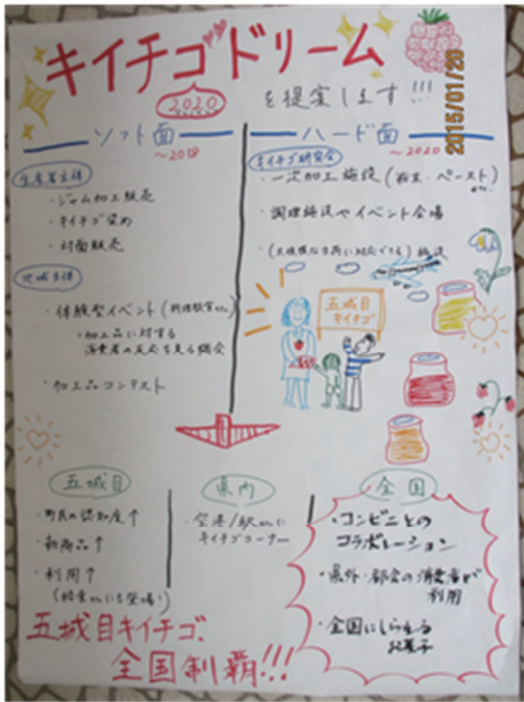 キイチゴドリーム
2020
を提案します!!!
2015/01/20
ソフト面
～2018
生産者主体
・ジャム加工販売
・キイチゴ染め
・対面販売
地域主体
・体験型イベント(料理教室etc)
・加工品に対する
消費者の反応を見る機会
・加工品コンテスト
ハード面
～2020
キイチゴ研究会
・一次加工施設(粉末・ペースト)
etc.
・調理施設やイベント会場
・(大規模な出荷に対応できる)施設
五城目
キイチゴ
五城目
・町民の認知度↑
・新商品↑
・利用↑
(給食etcにも登場!)
県内
・空港/駅etcに
キイチゴコーナー
全国
・コンビニとの
コラボレーション
・県外・都会の消費者が
利用
・全国にしられる
お菓子
五城目キイチゴ、
全国制覇!!!